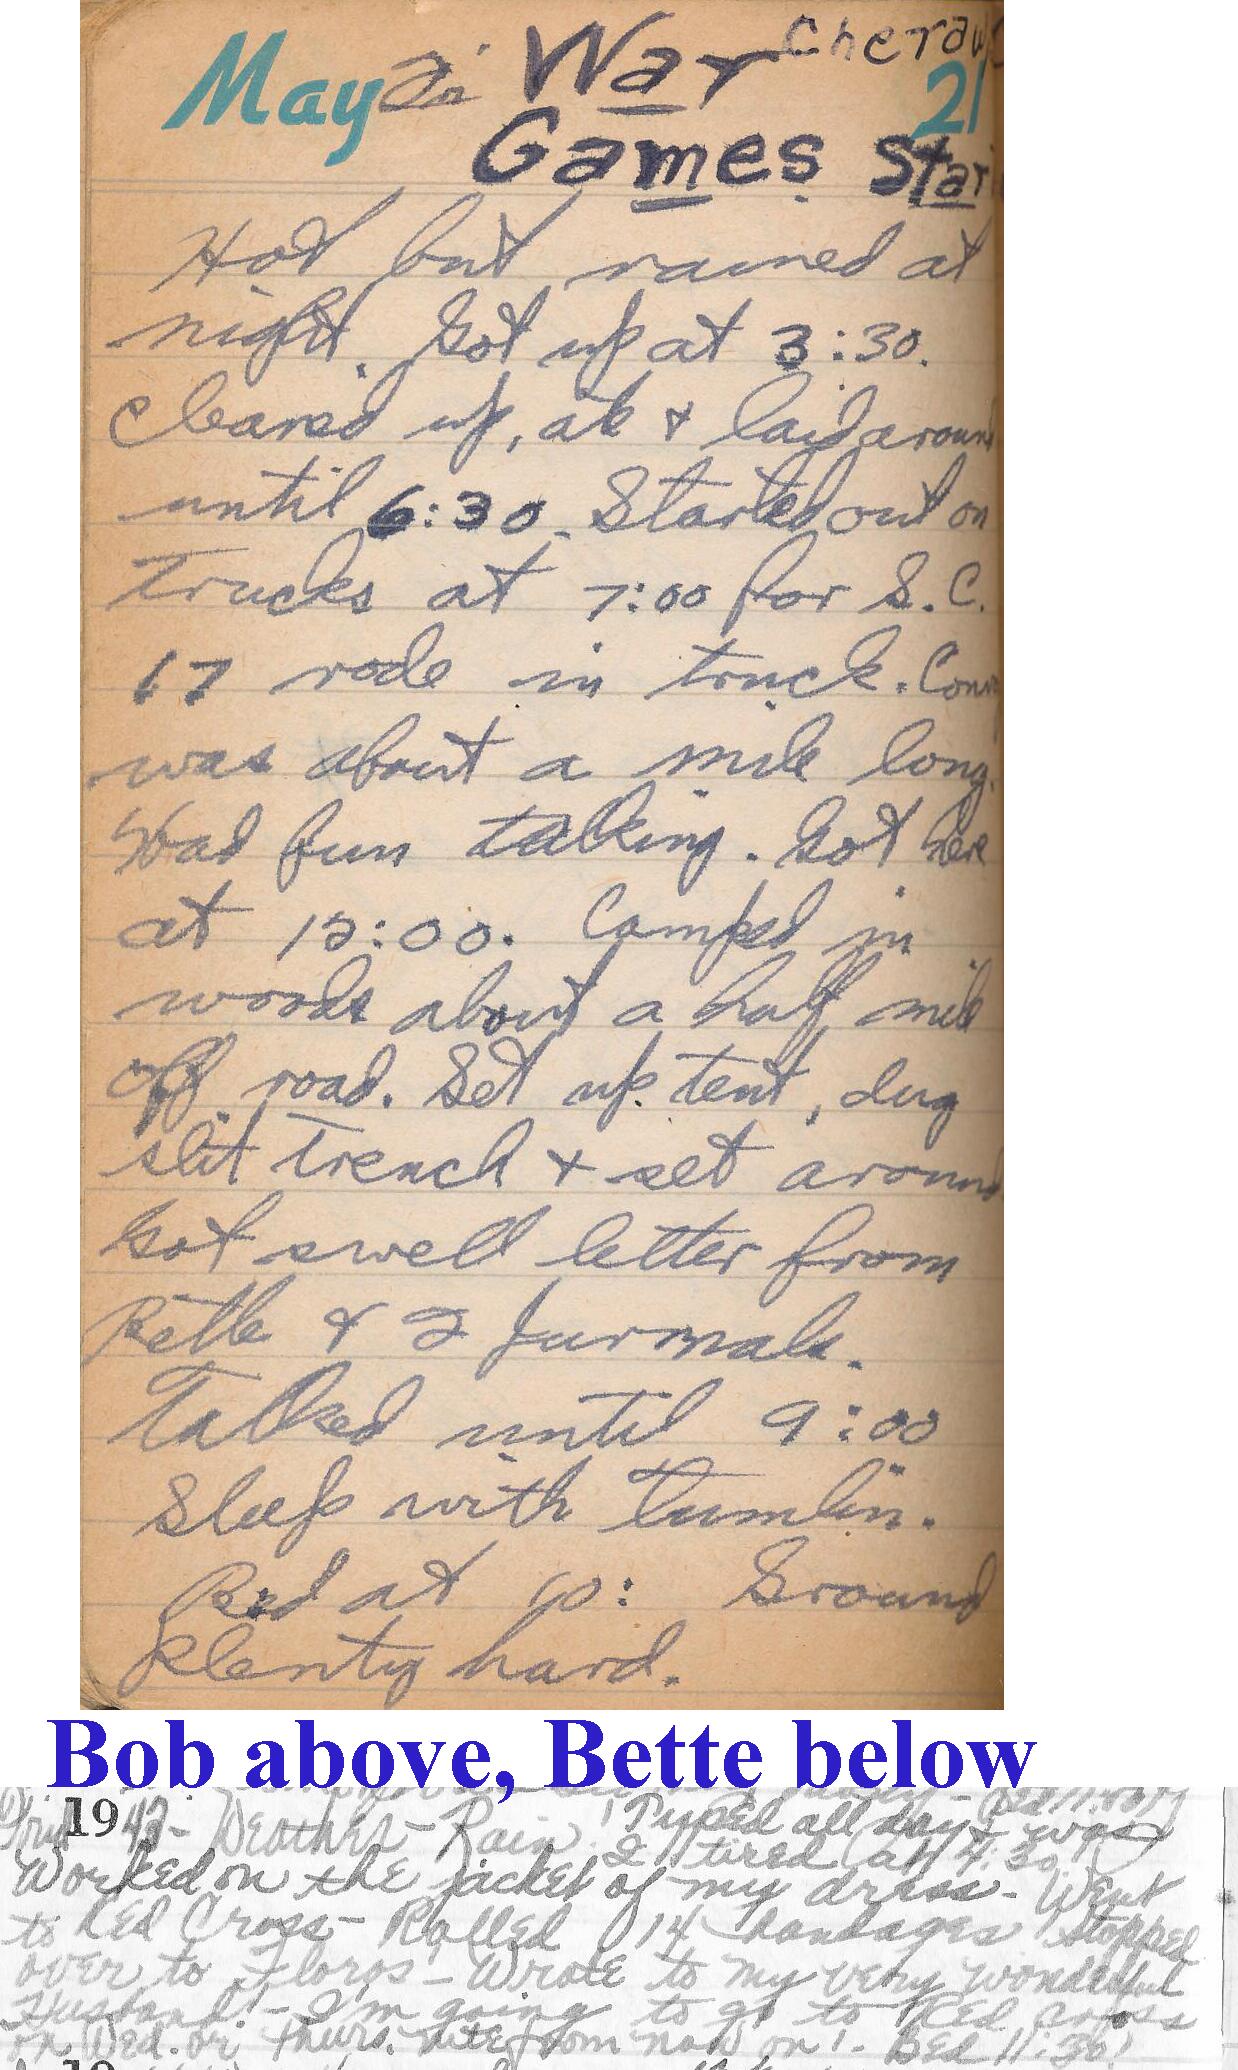 May War Cheraw
21
Games Start
Hot but rained at
night. Got up at 3:30.
Cleaned up, ate & laid around
until 6:30. Started out on
trucks at 7:00 for S.C.
17 rode in truck. Conv
was about a mile long.
Had fun talking. Got here
at 12:00. Camped in
woods about a half mile
off road. Set up tent, dug
slit trench & set around
Got swell letter from
Bette & 2 Jurnals.
Talked until 9:00
Sleep with Tumlin.
Bed at 10: Ground
plenty hard.
Bob above, Bette below
19
43 - Weather - Rain! Typed all day - was
I tired at 4:30
Worked on the jacket of my dress - Went
to Red Cross - Rolled 14 bandages! Stopped
over to Flores' - Wrote to my very wonderful
Husband! - I'm going to go to Red Cross
on Wed. or Thurs. nite from now on! - Bed 11:30!
19